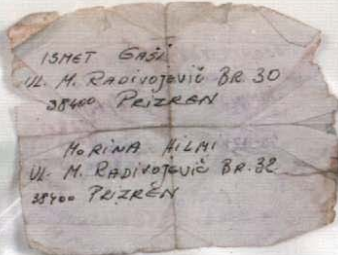 ISMET GAŠI
UL. M. RADIVOJEVIĆ BR. 30
38400 PRIZREN
MORINA HILMI
UL. M. RADIVOJEVIĆ BR. 32
38400 PRIZREN